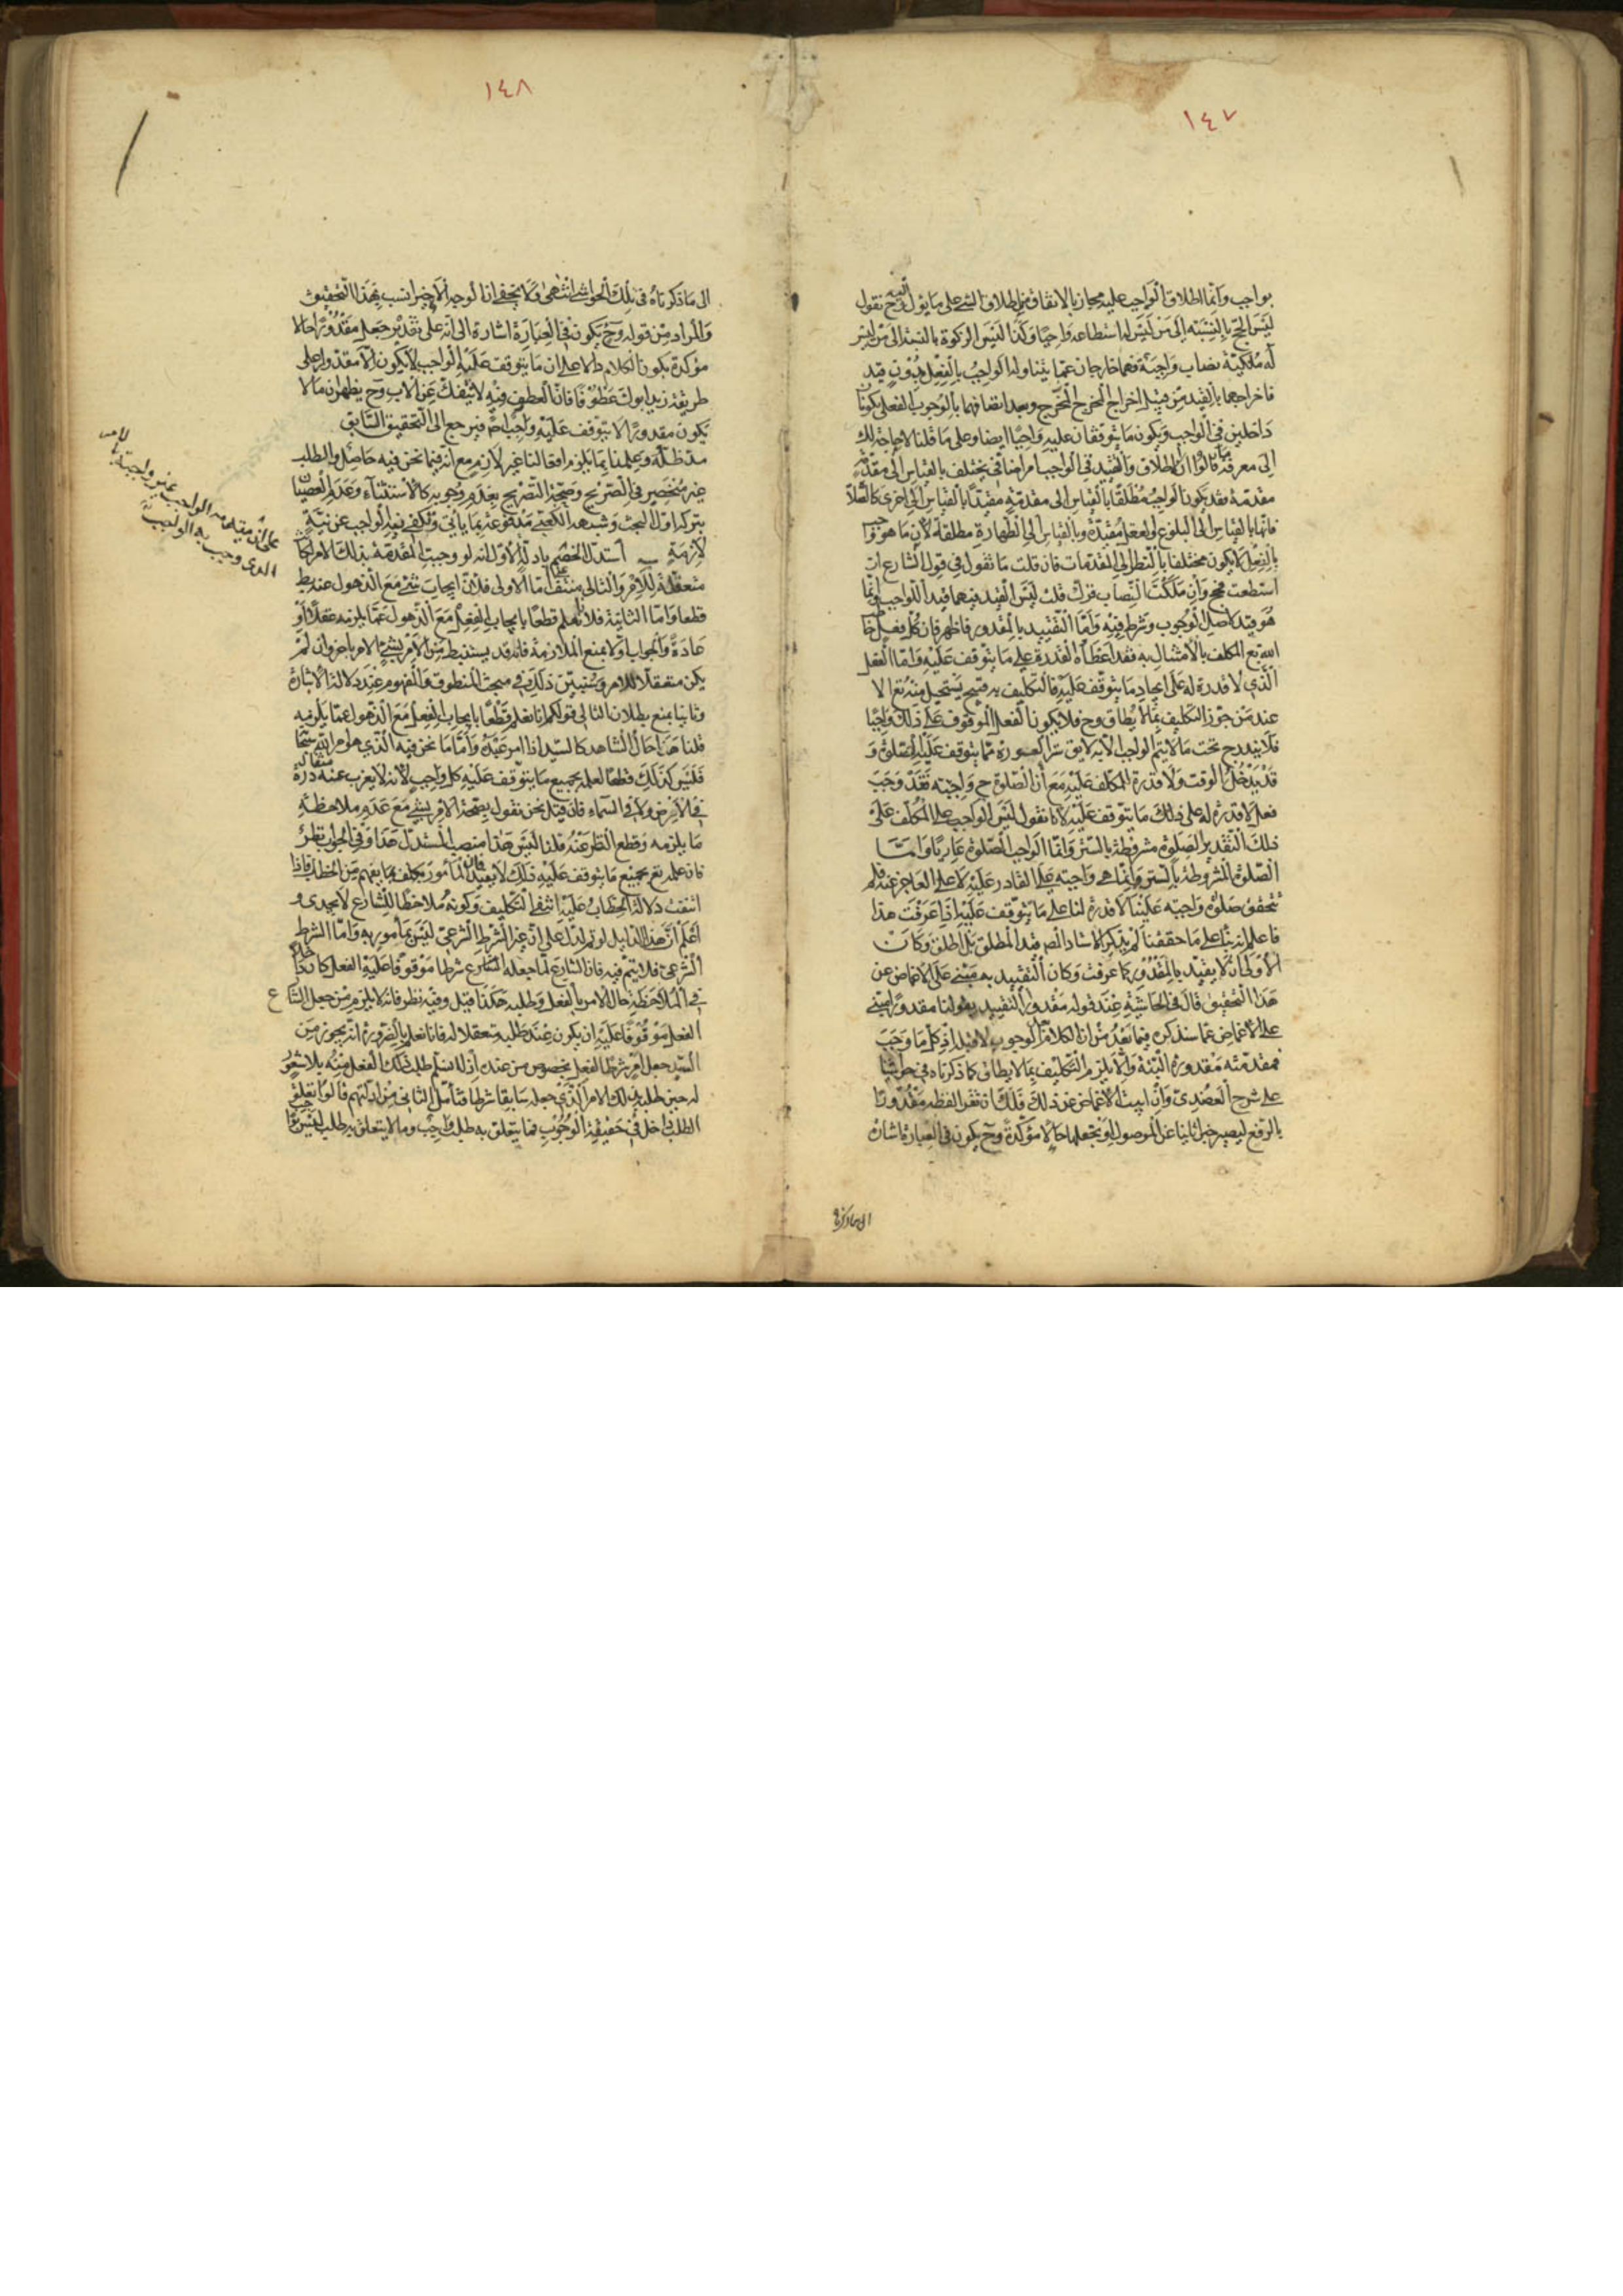 ١٤٧
بواجب وانما اطلاق الواجب عليه مجاز بالاتفاق من اطلاق الشئ على ما يؤل اليه وح نقول
ليس الحج بالنسبة الى من ليس له استطاعة واجبا وكذا ليس الزكوة بالنسبة الى من ليس
له ملكية نصاب واجبة فهما خارجان عما يتناوله الواجب بالفعل بدون قيد
فاخراجهما بالقيد من قبيل اخراج المخرج وبعد اتصافهما بالوجوب الفعلى يكونان
داخلين في الواجب ويكون ما يتوقفان عليه واجبا ايضا وعلى ما قلنا لا حاجة لك
الى معرفة ما قالوا ان الاطلاق والتقييد في الواجب امر اضافي يختلف بالقياس الى مقدمة
مقدمة فقد يكون الواجب مطلقا بالقياس الى مقدمة مقيدا بالقياس الى اخرى كالصلاة
فانها بالقياس الى البلوغ والعقل مقيدة وبالقياس الى الطهارة مطلقة لان ما هو واجب
بالفعل لا يكون مختلفا بالنظر الى المقدمات فان قلت ما تقول في قول الشارع ان
استطعت فحج وان ملكت النصاب فزك قلت ليس القيد فيهما قيدا للواجب وانما
هو قيد لاصل الوجوب وشرط فيه واما التقييد بالمقدور فاظهر فان كل فعل خاطب
الله تع المكلف بالامتثال به فقد اعطاه القدرة على ما يتوقف عليه واما الفعل
الذي لا قدرة له على ايجاد ما يتوقف عليه فالتكليف به قبيح يستحيل منه تع الا
عند من جوز التكليف بما لا يطاق وح فلا يكون الفعل الموقوف على ذلك واجبا
فلا يندرج تحت ما لا يتم الواجب الا به لا يق ستر العورة مما يتوقف عليه الصلوة و
قد يدخل الوقت ولا قدرة للمكلف عليه مع ان الصلوة ح واجبة فقد وجب
فعل لا قدرة له على ذلك ما يتوقف عليه لانا نقول ليس الواجب على المكلف على
ذلك التقدير الصلوة مشروطة بالستر وانما الواجب الصلوة عاريا واما
الصلوة المشروطة بالستر وانما هي واجبة على القادر عليه لا على العاجز عنه فلم
تتحقق صلوة واجبة علينا لا قدرة لنا على ما يتوقف عليه اذا عرفت هذا
فاعلم انه بناء على ما حققنا لم يذكر الاستاد المص قيد المطلق بل اطلق وكان
الاولى ان لا يقيد بالمقدور كما عرفت وكان التقييد به مبني على الاغماض عن
هذا التحقيق قال في الحاشية عند قوله مقدورا التقييد بقولنا مقدورا مبني
على الاغماض عما سنذكره فيما بعد من ان الكلام في الوجوب لا قبله اذ كل ما وجب
فمقدمته مقدورة البتة والا يلزم التكليف بما لا يطاق كما ذكرناه في حواشينا
على شرح العضدي وان ابيت الاغماض عن ذلك فلك ان تقرا لفظة مقدورا
بالرفع ليصير خبرا ثانيا عن الموصول او تجعلها حالا مؤكدة وح يكون في العبارة اشارة
الى ما ذكرناه
١٤٨
الى ما ذكرناه في تلك الحواشي انتهى ولا يخفى ان الوجه الاخير انسب بهذا التحقيق
والمراد من قوله وح يكون في العبارة اشارة الى انه على تقدير جعل مقدورا حالا
مؤكدة يكون الكلام دالا على ان ما يتوقف عليه الواجب لا يكون الا مقدورا على
طريقة زيد ابوك عطوفا فان العطف فيه لا ينفك عن الاب وح يظهر ان ما لا
يكون مقدورا لا يتوقف عليه واجب اصلا فيرجع الى التحقيق السابق
مد ظله وعلمنا بما يلزم امقالنا غير لازم مع انه فيما نحن فيه حاصل والطلب
غير منحصر في الصريح وصحة التصريح بعدم وجوبه كالاستثناء وعدم العصيان
بتركه اول البحث وشبهة الكعبي مدفوعة بما ياتي وتكفي نية الواجب عن نية
لازمة استدل الخصم بادلة الاول انه لو وجبت المقدمة بذلك الامر لكانت
متعقلة للامر والتالي منتف اما الاولى فلان ايجاب شئ مع الذهول عنه بط
قطعا واما الثانية فلانا نعلم قطعا بايجاب الفعل مع الذهول عما يلزمه عقلا او
عادة والجواب اولا بمنع الملازمة فانه قد يستنبط من الامر بشئ الامر باخر وان لم
يكن متعقلا للامر وسنبين ذلك في مبحث المنطوق والمفهوم عند دلالة الاشارة
وثانيا بمنع بطلان التالي قولكم انا نعلم قطعا بايجاب الفعل مع الذهول عما يلزمه
قلنا هذا حال الشاهد كالسيد اذا امر عبده واما ما نحن فيه الذي هو امر الله سبحانه
فليس كذلك قطعا لعلمه بجميع ما يتوقف عليه كل واجب لانه لا يعزب عنه مثقال ذرة
في الارض ولا في السماء فان قيل نحن نقول بصحة الامر بشئ مع عدم ملاحظة
ما يلزمه وقطع النظر عنه قلنا ليس هذا منصب المستدل هذا وفي الجواب نظر
فان علمه تع بجميع ما يتوقف عليه ذلك لا يفيد فان المامور مكلف بما يفهم من الخطاب فاذا
انتفت دلالة الخطاب عليه انتفى التكليف وكونه ملاحظا للشارع لا يجدي و
اعلم ان هذا الدليل لو تم لدل على ان غير الشرط الشرعي ليس بمأمور به واما الشرط
الشرعي فلا يتم فيه فان الشارع لما جعله الشارع شرطا موقوفا عليه الفعل كان داخلا
في الملاحظة حال الامر بالفعل وطلبه هكذا قيل وفيه نظر فانه لا يلزم من جعل الشارع
الفعل موقوفا عليه ان يكون عند طلبه متعقلا له فانا نعلم بالضرورة انه يجوز من
السيد جعل امر شرطا لفعل بخصوص من عنده اذ لا نسلم طلب ذلك الفعل منه بلا شعور
له حين طلبه بذلك الامر الذي جعله سابقا شرطا فتأمل الثاني من ادلتهم قالوا تعلق
الطلب داخل في حقيقة الوجوب فما يتعلق به طلب واجب وما لا يتعلق به طلب ليس بواجب
على ان مقدمة الواجب غير واجبة بالامر
الذى وجب به الواجب